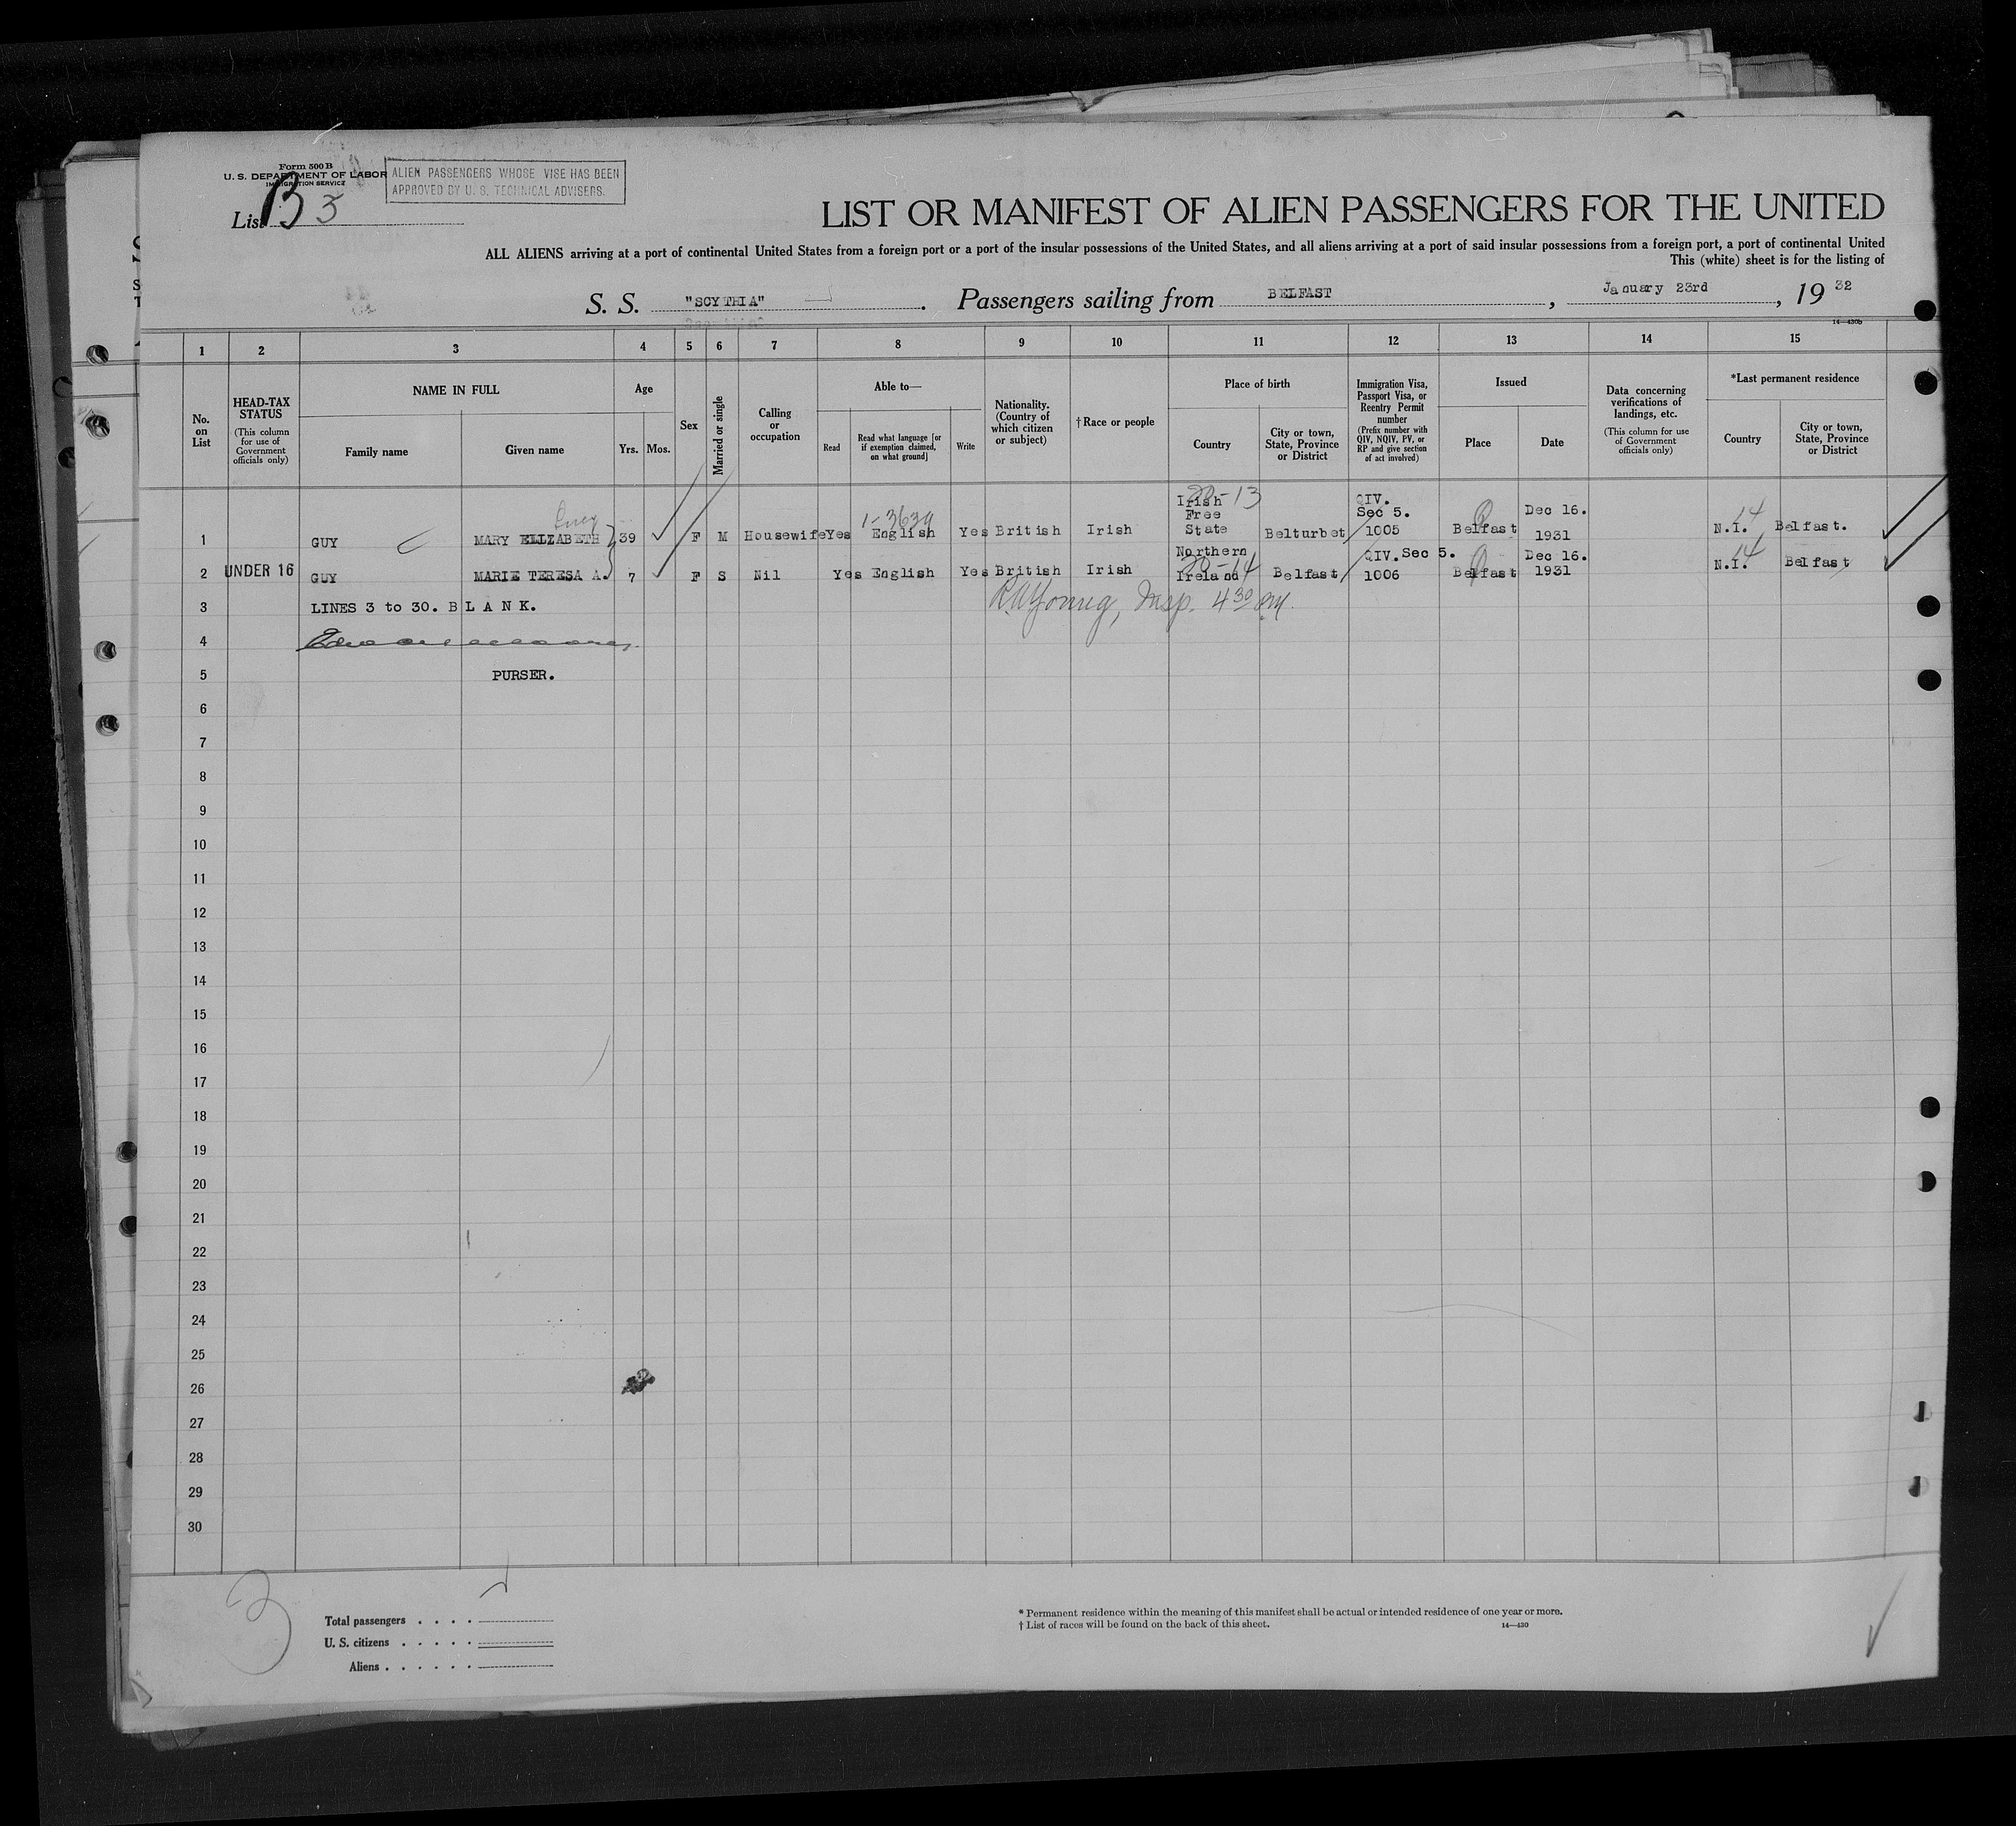 Form 500 B
U. S. DEPARTMENT OF LABOR
IMMIGRATION SERVICE
ALIEN PASSENGERS WHOSE VISE HAS BEEN
APPROVED BY U. S. TECHNICAL ADVISERS.
List B 3
LIST OR MANIFEST OF ALIEN PASSENGERS FOR THE UNITED
ALL ALIENS arriving at a port of continental United States from a foreign port or a port of the insular possessions of the United States, and all aliens arriving at a port of said insular possessions from a foreign port, a port of continental United
This (white) sheet is for the listing of
S. S. "SCYTHIA". Passengers sailing from BELFAST, January 23rd, 19 32
14—430b
1 2 3 4 5 6 7 8 9 10 11 12 13 14 15
No. on List
HEAD-TAX STATUS
(This column for use of Government officials only)
NAME IN FULL
Family name
Given name
Age
Yrs.
Mos.
Sex
Married or single
Calling or occupation
Able to—
Read
Read what language [or if exemption claimed, on what ground]
Write
Nationality. (Country of which citizen or subject)
† Race or people
Place of birth
Country
City or town, State, Province or District
Immigration Visa, Passport Visa, or Reentry Permit number
(Prefix number with QIV, NQIV, PV, or RP and give section of act involved)
Issued
Place
Date
Data concerning verifications of landings, etc.
(This column for use of Government officials only)
*Last permanent residence
Country
City or town, State, Province or District
1 GUY MARY ELIZABETH 39 F M Housewife Yes 1-3639 English Yes British Irish 20-13 Irish Free State Belturbet QIV. Sec 5. 1005 Belfast Dec 16. 1931 14 N.I. Belfast.
2 UNDER 16 GUY MARIE TERESA A. 7 F S Nil Yes English Yes British Irish 20-14 Northern Ireland Belfast QIV. Sec 5. 1006 Belfast Dec 16. 1931 14 N.I. Belfast
3 LINES 3 to 30. B L A N K. Young, Insp. 4 30 PM.
4
5 PURSER.
6
7
8
9
10
11
12
13
14
15
16
17
18
19
20
21
22
23
24
25
26
27
28
29
30
3
Total passengers . . . .
U. S. citizens . . . . .
Aliens . . . . . .
* Permanent residence within the meaning of this manifest shall be actual or intended residence of one year or more.
† List of races will be found on the back of this sheet.
14—430